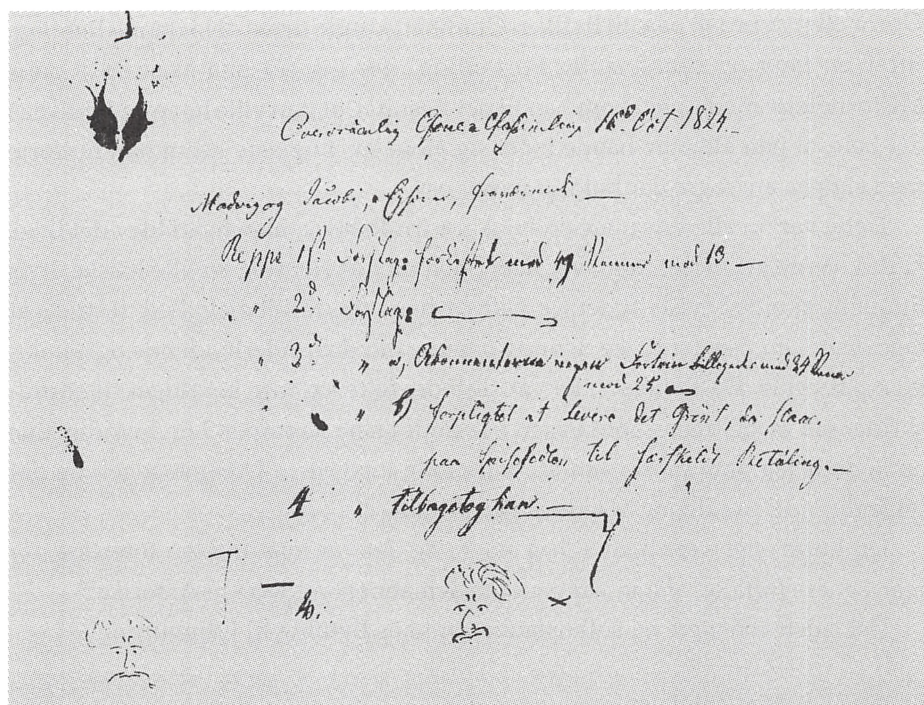 Overordentlig General Forsamling 16de Oct. 1824.
Madvig og Jacobi, fraværende.
Repps 1st Forslag: forkastet med 49 Stemmer mod 13.
" 2d Forslag:
" 3d " a, Abonnenterne ingen Fortrin billigedes med 34 Stemmer
mod 25.
" b) forpligtet at levere det Grönt, der staar
paa Spisesedlen til særskildt Betaling.
4 " tilbagetog han.